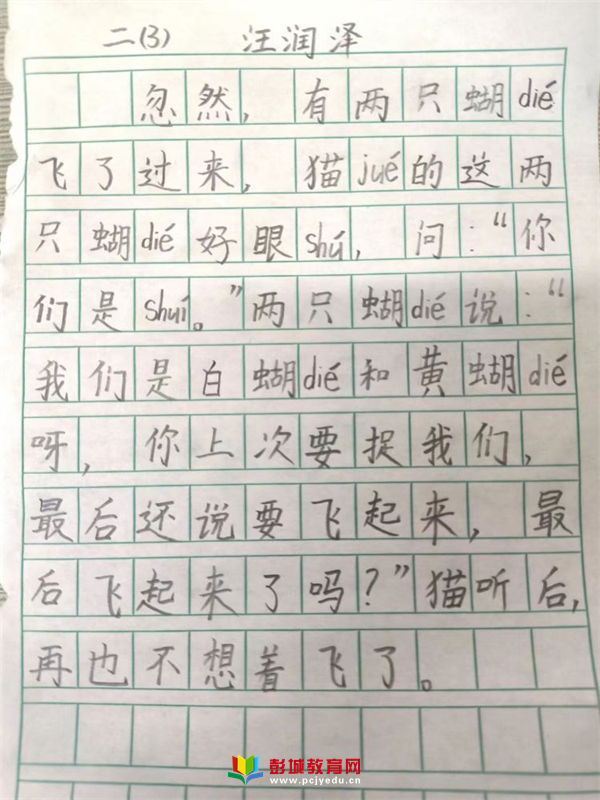 二(3) 汪润泽
忽然，有两只蝴dié
飞了过来，猫jué的这两
只蝴dié好眼shú，问：“你
们是shuí。”两只蝴dié说：“
我们是白蝴dié和黄蝴dié
呀，你上次要捉我们，
最后还说要飞起来，最
后飞起来了吗？”猫听后，
再也不想着飞了。
彭城教育网
www.pcjyedu.cn